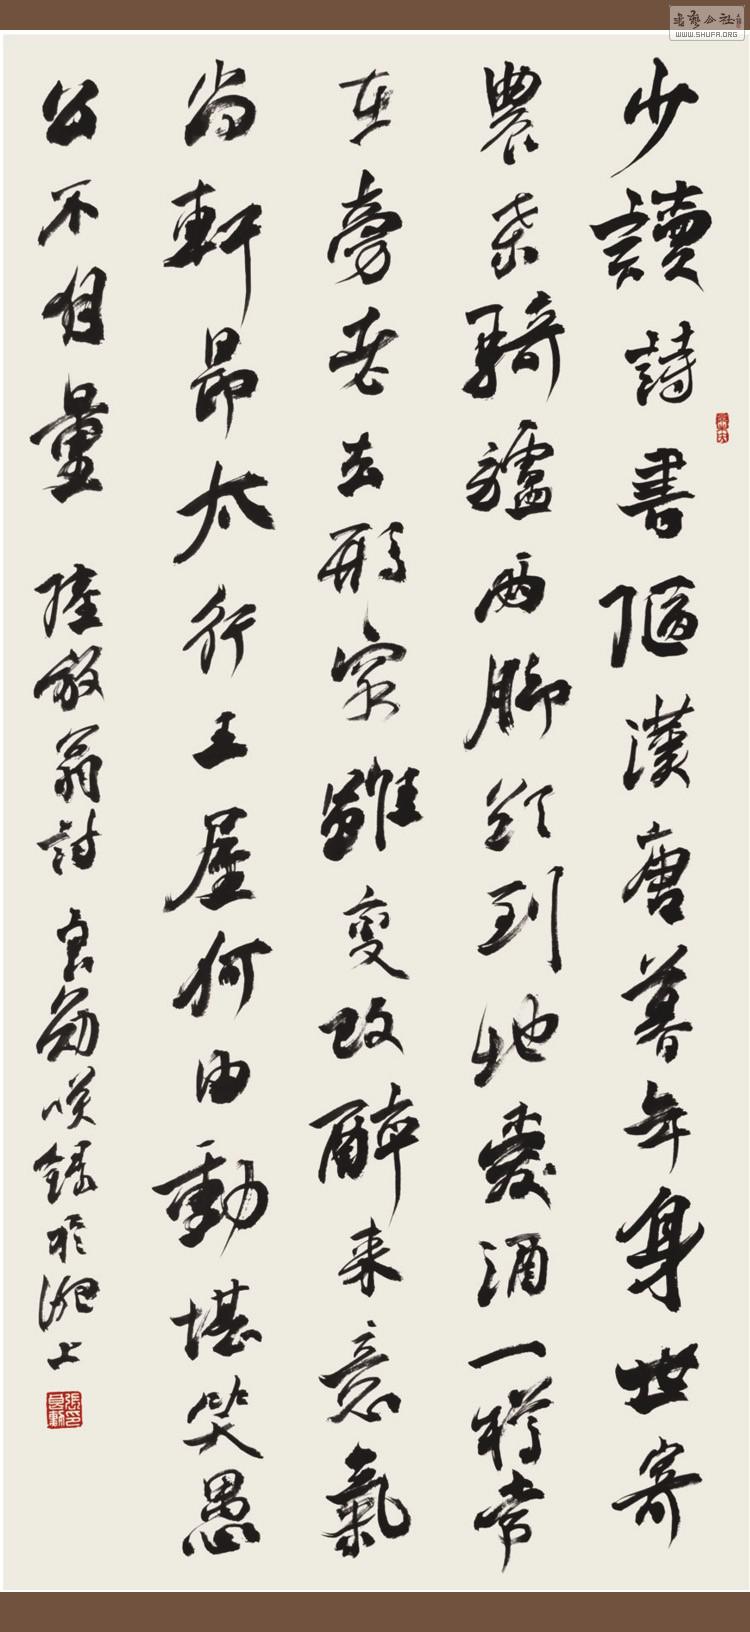 少讀詩書陋漢唐暮年身世寄
農桒騎驢兩脚欲到地愛酒一樽常
在旁老去形容雖變改醉来意氣
尚軒昂太行王屋何由動堪笑愚
公不自量 陸放翁詩 良勛咲錄於淝上
張印良勳
書藝公社
WWW.SHUFA.ORG